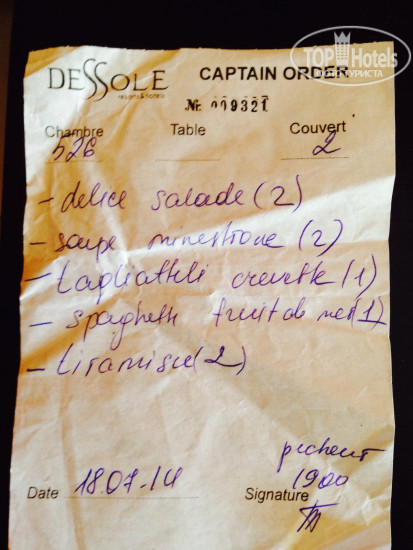 TOP Hotels
DESSOLE CAPTAIN ORDER
resorts & hotels
№ 009321
Chambre Table Couvert
526 2
- delice salade (2)
- soupe minestrone (2)
- tagliatteli crevette (1)
- spaghetti fruit de mer (1)
- tiramisu (2)
pecheur
Date 18.07.14 1900
Signature